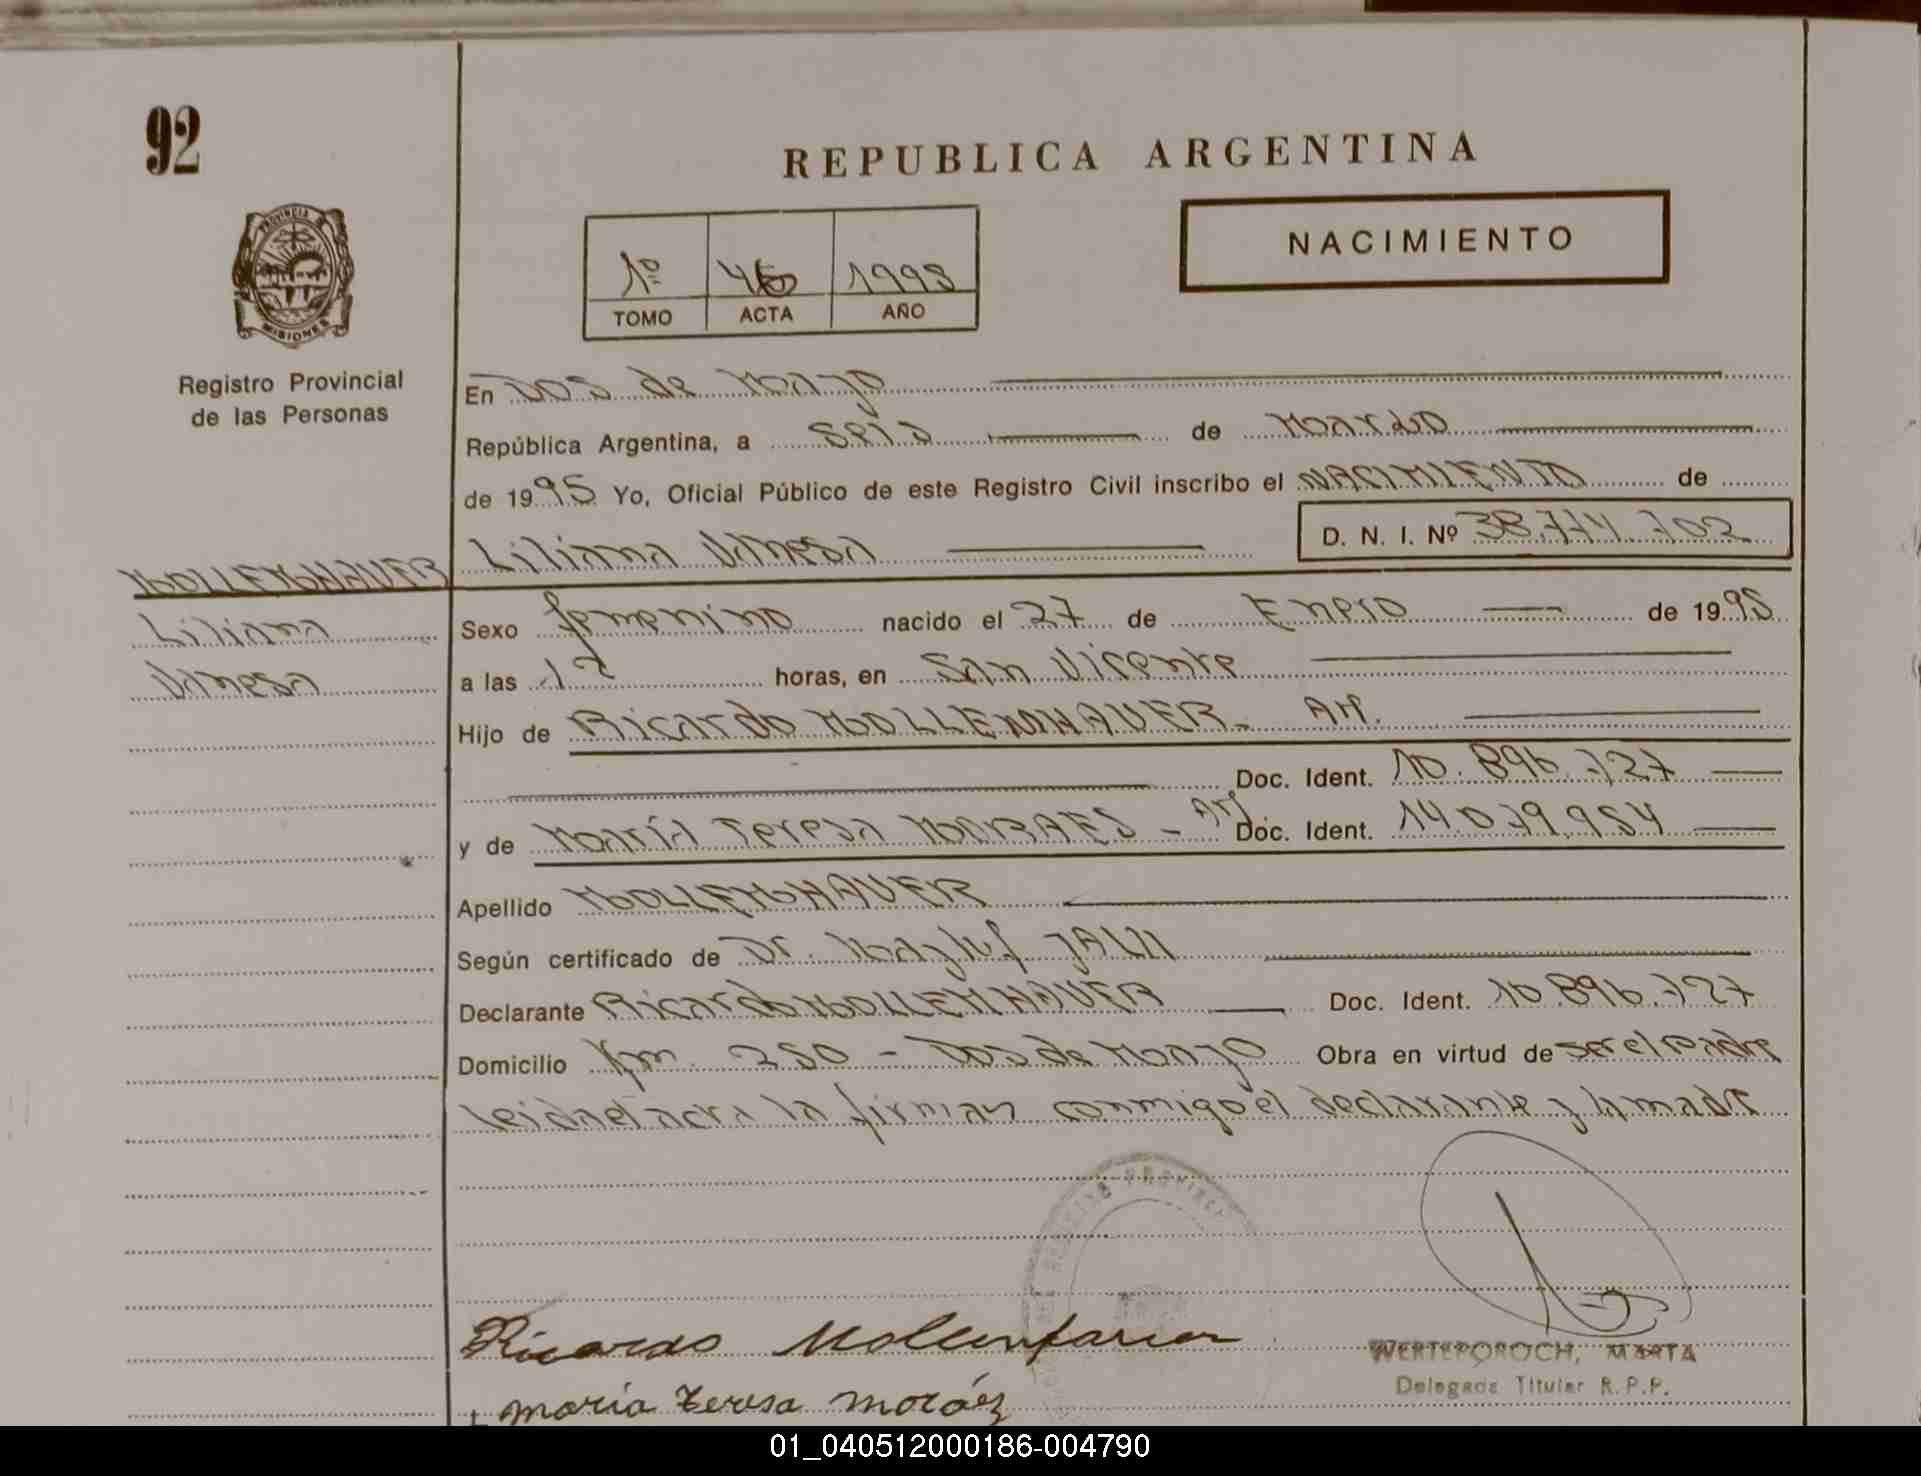 92
REPUBLICA ARGENTINA
NACIMIENTO
1º 46 1995
TOMO ACTA AÑO
PROVINCIA DE
MISIONES
Registro Provincial
de las Personas
En DOS de Mayo
República Argentina, a SEIS de Marzo
de 1995 Yo, Oficial Público de este Registro Civil inscribo el NACIMIENTO de
Liliana Vanesa D. N. I. Nº 38.774.702
MOLLENHAUER
Liliana
Vanesa
Sexo femenino nacido el 27 de Enero de 1995
a las 12 horas, en San Vicente
Hijo de Ricardo MOLLENHAUER - AR.
Doc. Ident. 10.896.727
y de María Teresa MORAES - Arj. Doc. Ident. 14.079.954
Apellido MOLLENHAUER
Según certificado de Dr.
Declarante Ricardo MOLLENHAUER Doc. Ident. 10.896.727
Domicilio Km. 250 - Dos de Mayo Obra en virtud de ser el padre
leida el acta la firman conmigo el declarante y la madre
REGISTRO PROVINCIAL
Ricardo Mollenhauer
María Teresa Moráez
WERTEPOROCH, MARTA
Delegada Titular R.P.P.
01_040512000186-004790